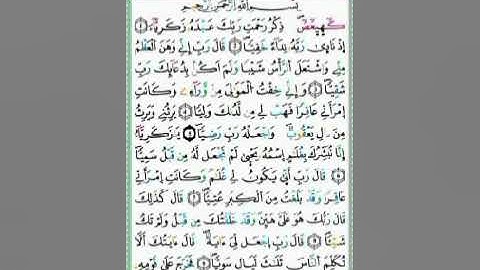 بِسْمِ اللَّهِ الرَّحْمَٰنِ الرَّحِيمِ
كٓهيعٓصٓ ذِكْرُ رَحْمَتِ رَبِّكَ عَبْدَهُ زَكَرِيَّآءَ
إِذْ نَادَىٰ رَبَّهُ نِدَآءً خَفِيّاً قَالَ رَبِّ إِنِّي وَهَنَ الْعَظْمُ
مِنِّي وَاشْتَعَلَ الرَّأْسُ شَيْباً وَلَمْ أَكُنْ بِدُعَآئِكَ رَبِّ
شَقِيّاً وَإِنِّي خِفْتُ الْمَوَٰلِيَ مِنْ وَّرَآءِے وَكَانَتِ
اِمْرَأَتِي عَاقِراً فَهَبْ لِي مِن لَّدُنكَ وَلِيّاً يَرِثُنِي وَيَرِثُ
مِنَ ـالِ يَعْقُوبَ وَاجْعَلْهُ رَبِّ رَضِيّاً يَٰزَكَرِيَّآءُ
إِنَّا نُبَشِّرُكَ بِغُلَٰمٍ اِسْمُهُ يَحْيَىٰ لَمْ نَجْعَل لَّهُ مِن قَبْلُ سَمِيّاً
قَالَ رَبِّ أَنَّىٰ يَكُونُ لِي غُلَٰمٌ وَكَانَتِ اِمْرَأَتِي
عَاقِراً وَقَدْ بَلَغْتُ مِنَ الْكِبَرِ عُتِيّاً قَالَ كَذَٰلِكَ
قَالَ رَبُّكَ هُوَ عَلَيَّ هَيِّنٌ وَقَدْ خَلَقْتُكَ مِن قَبْلُ وَلَمْ تَكُ
شَيْـٔاً قَالَ رَبِّ اِجْعَل لِّي ءَايَةً قَالَ ءَايَتُكَ أَلَّا
تُكَلِّمَ النَّاسَ ثَلَٰثَ لَيَالٍ سَوِيّاً فَخَرَجَ عَلَىٰ قَوْمِهِ